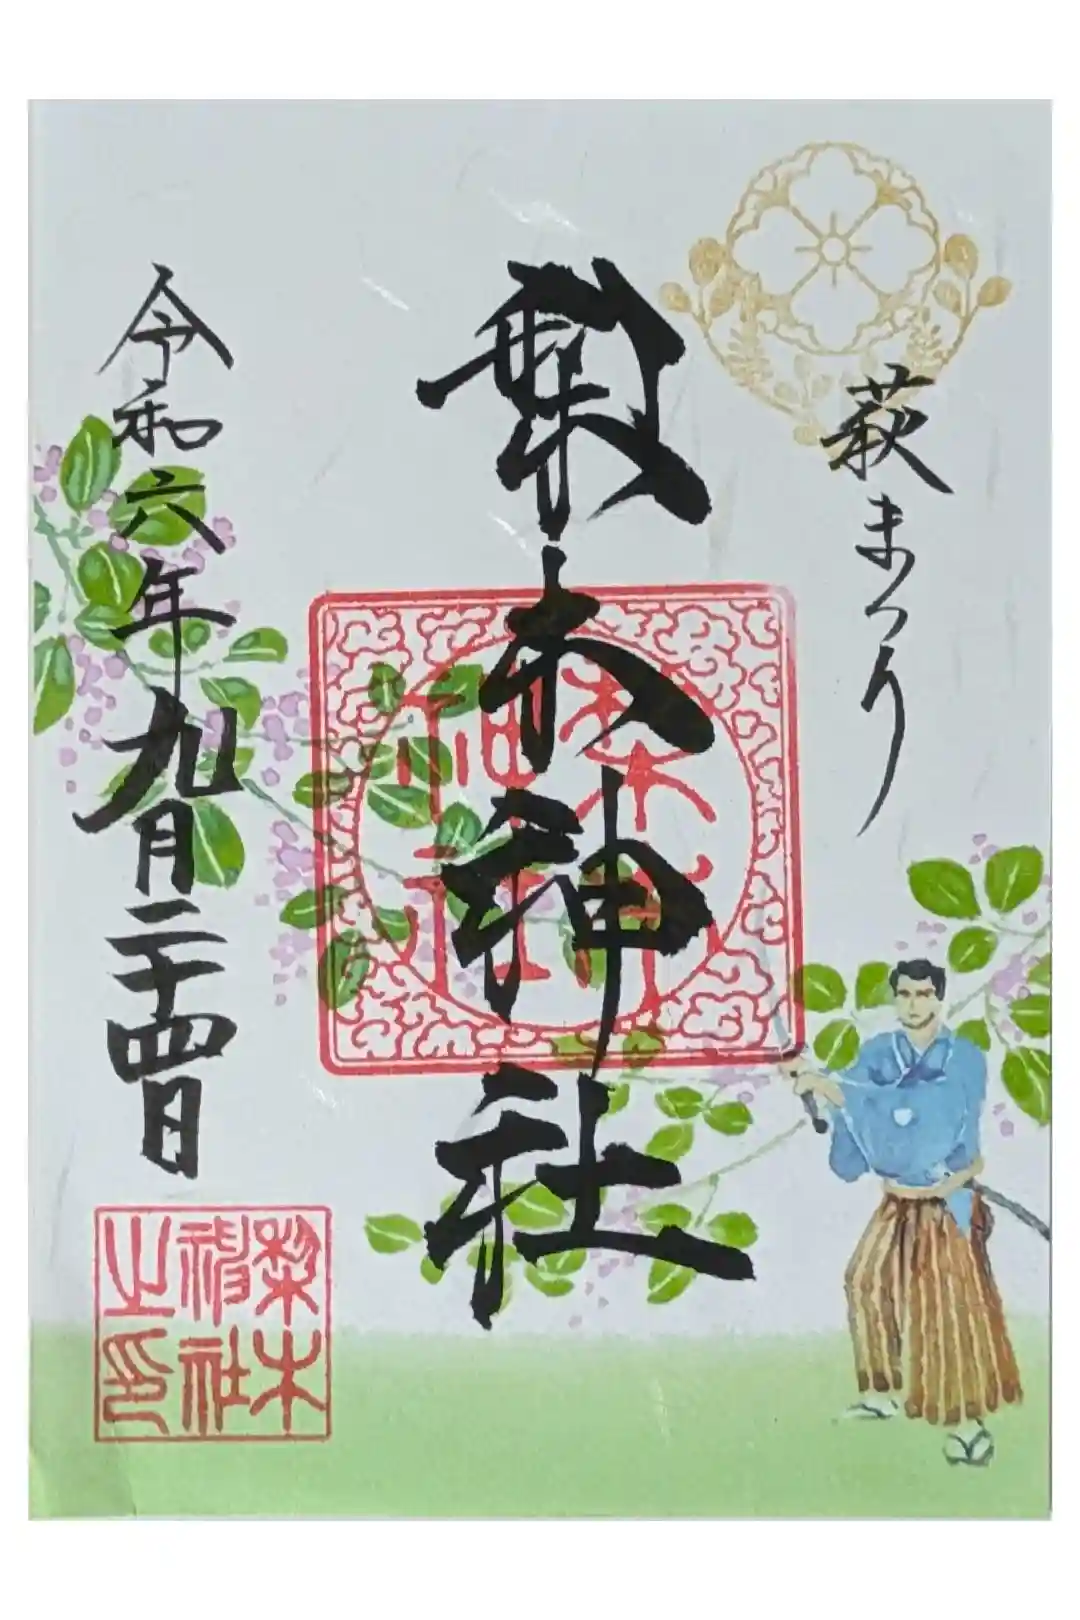 萩まつり
梨木神社
令和六年九月二十四日
梨木
神社
梨木
神社
之印